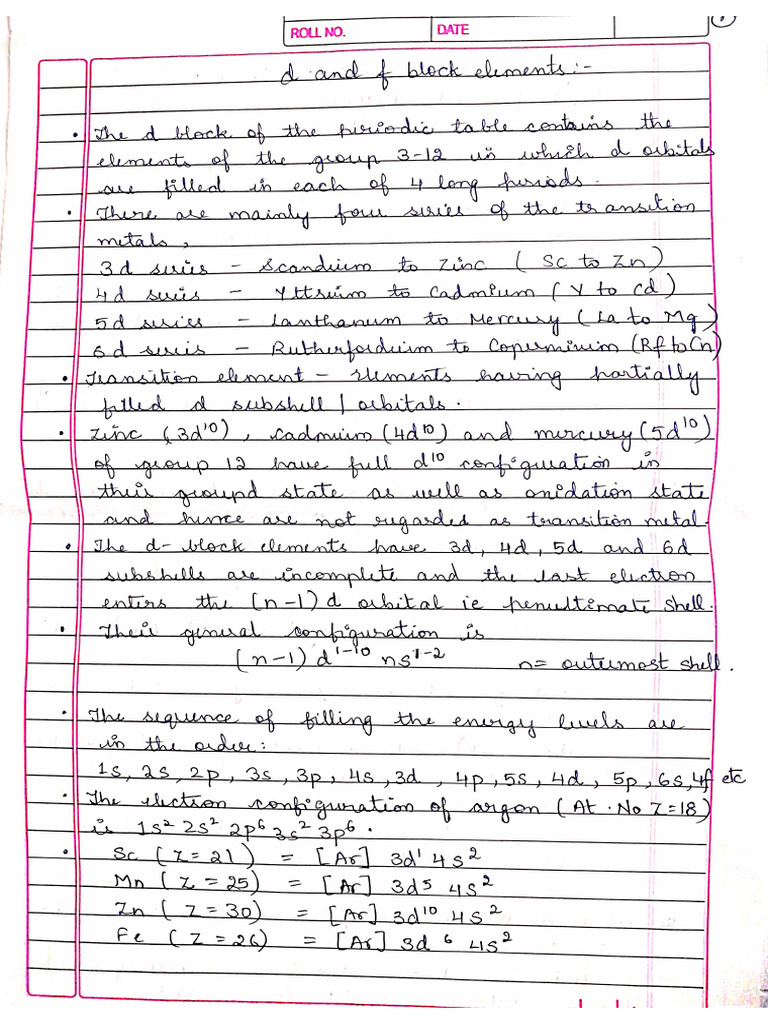 ROLL NO. DATE
d and f block elements:-
• The d block of the periodic table contains the
elements of the group 3-12 in which d orbitals
are filled in each of 4 long periods.
• There are mainly four series of the transition
metals,
3d series - Scandium to Zinc ( Sc to Zn)
4d series - Yttrium to Cadmium ( Y to Cd)
5d series - Lanthanum to Mercury ( La to Mg)
6d series - Rutherfordium to Coperminium (Rf to Cn)
• Transition element - Elements having partially
filled d subshell / orbitals.
• Zinc (3d¹⁰), cadmium (4d¹⁰) and mercury (5d¹⁰)
of group 12 have full d¹⁰ configuration in
their groupd state as well as oxidation state
and hence are not regarded as transition metal.
• The d- block elements have 3d, 4d, 5d and 6d
subshells are incomplete and the last electron
enters the (n-1) d orbital ie penultimate shell.
• Their general configuration is
(n-1) d¹⁻¹⁰ ns¹⁻² n= outermost shell.
• The sequence of filling the energy levels are
in the order:
1s, 2s, 2p, 3s, 3p, 4s, 3d, 4p, 5s, 4d, 5p, 6s, 4f etc
• The electron configuration of argon ( At. No Z=18)
is 1s² 2s² 2p⁶ 3s² 3p⁶.
• Sc ( Z = 21 ) = [Ar] 3d¹ 4s²
Mn ( Z = 25) = [Ar] 3d⁵ 4s²
Zn ( Z = 30) = [Ar] 3d¹⁰ 4s²
Fe ( Z = 26) = [Ar] 3d ⁶ 4s²